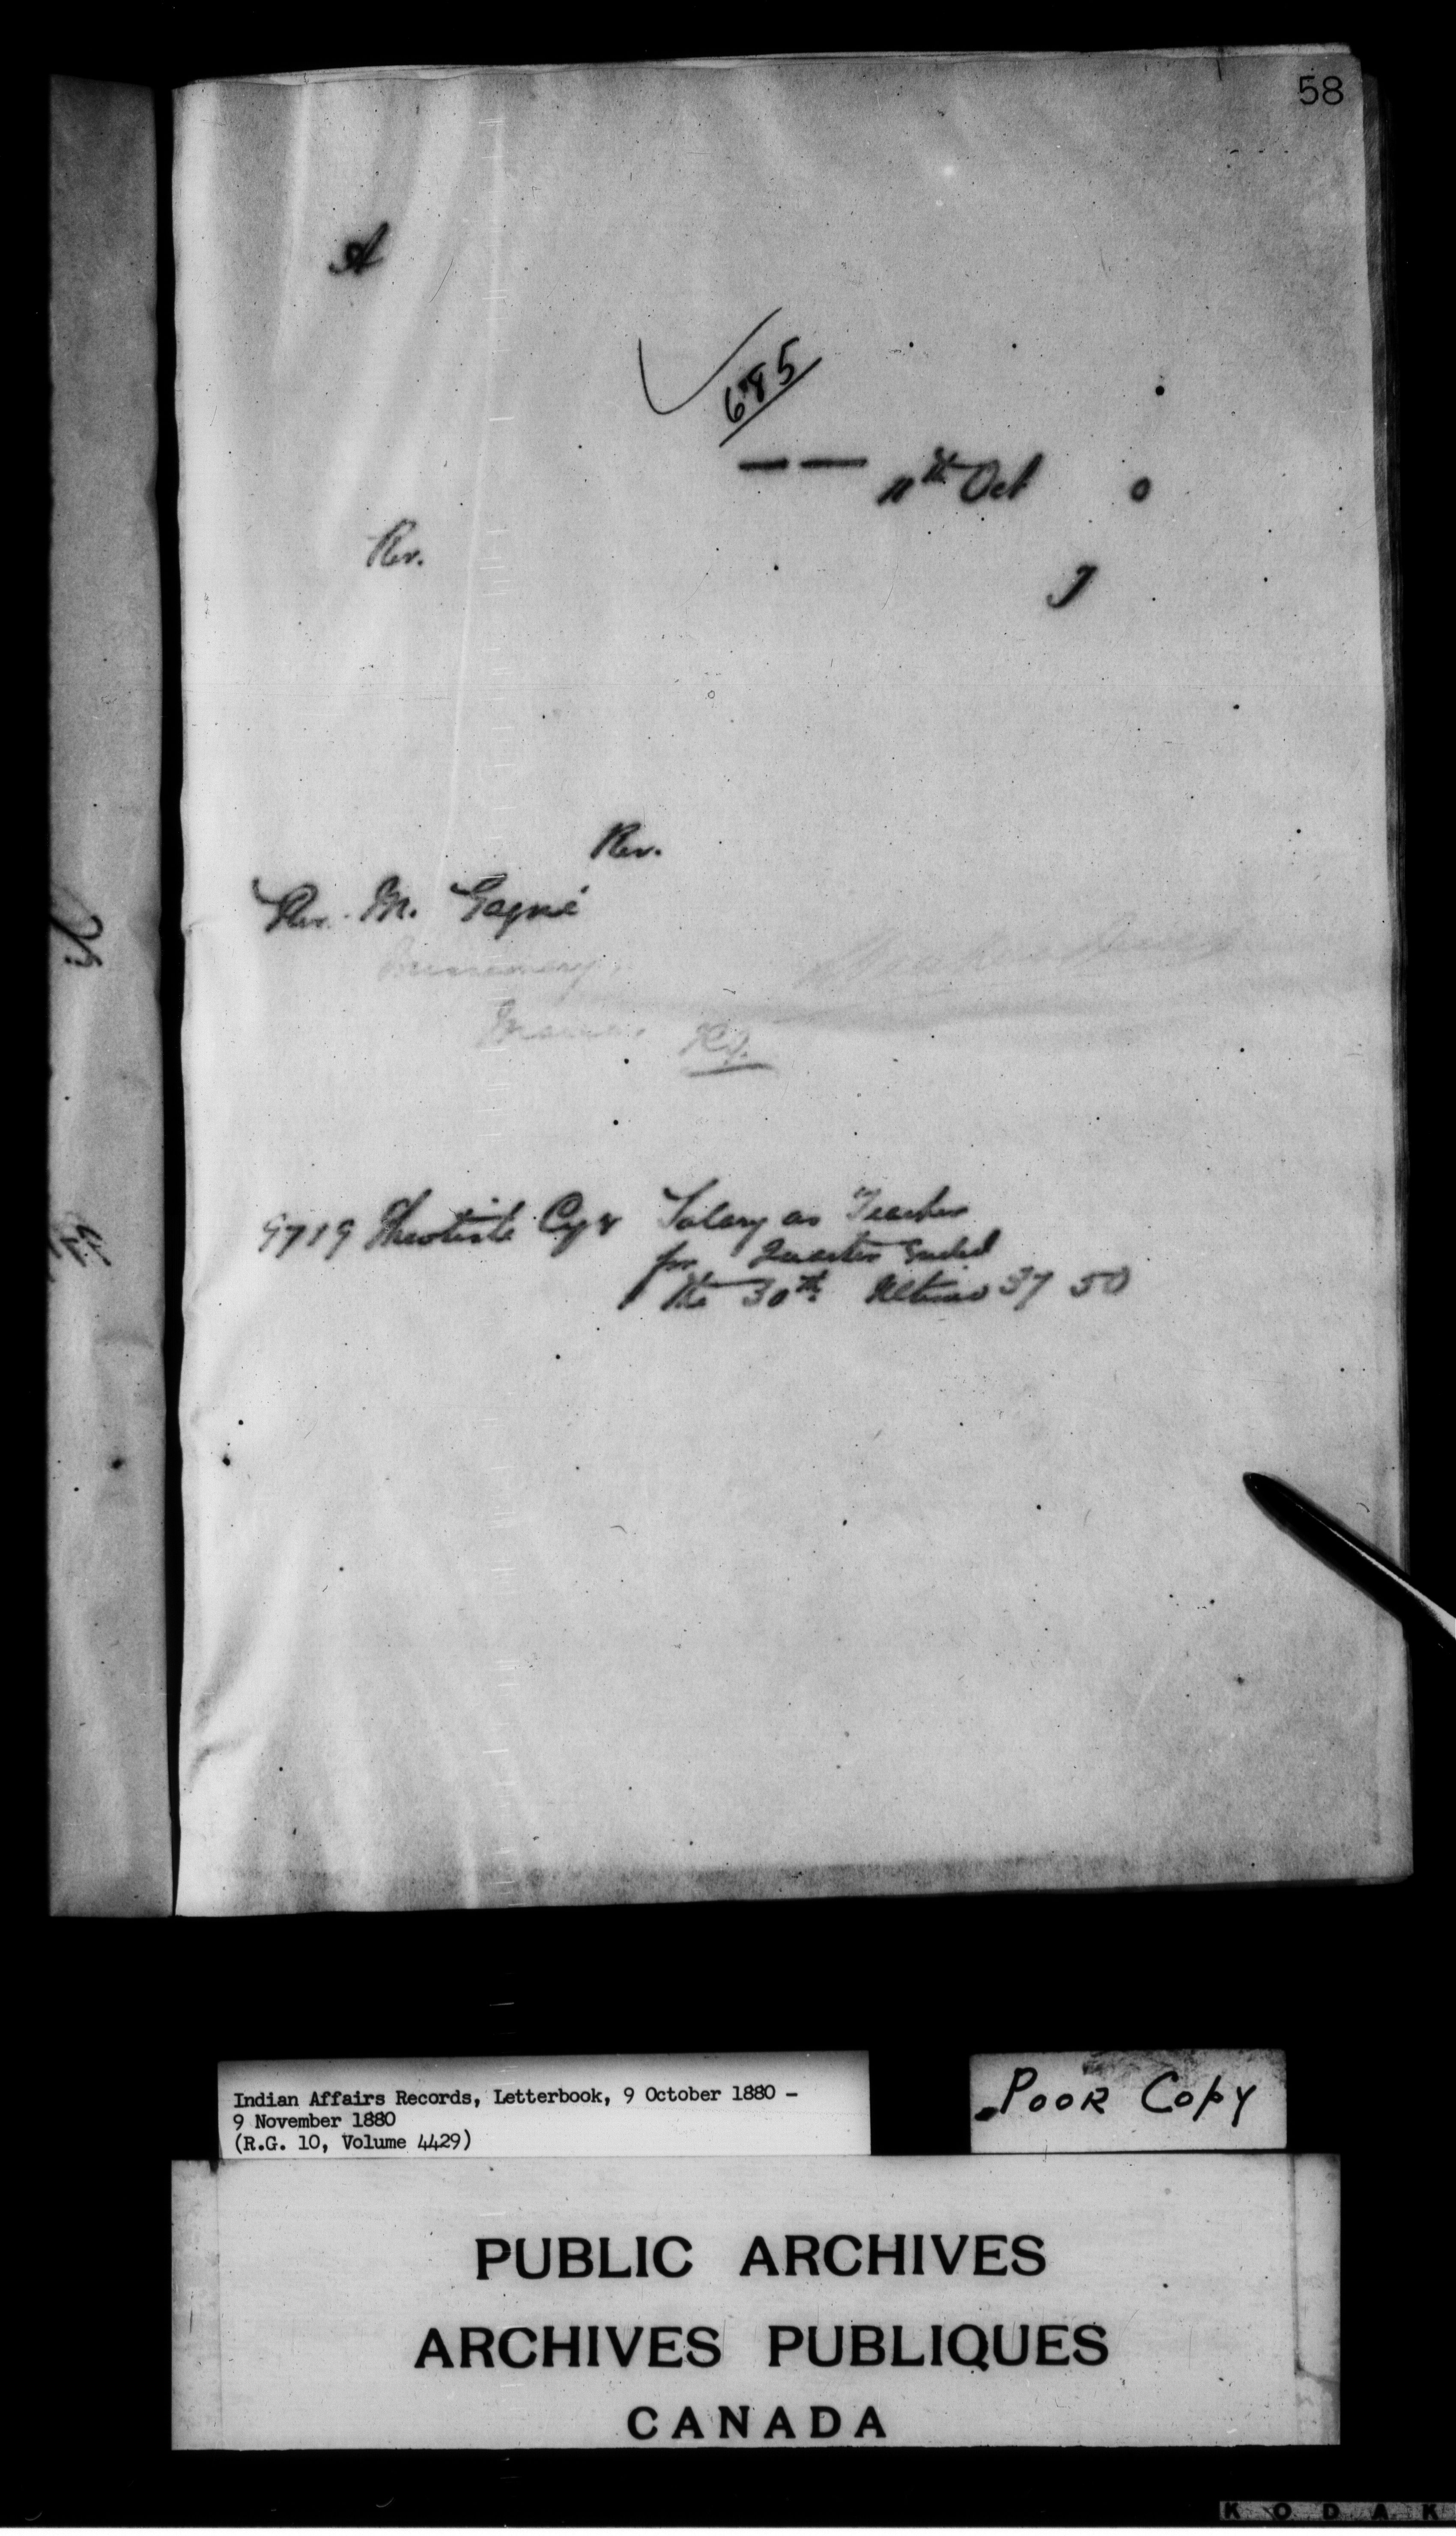 58
A
685
11th Oct 0
Rev.
J
Rev.
Rev. M. Gagné
Missionary,
P.Q.
9719 Theotiste Cyr Salary as Teacher
for Quarter ended
the 30th Ultimo 37 50
Indian Affairs Records, Letterbook, 9 October 1880 -
9 November 1880
(R.G. 10, Volume 4429)
Poor Copy
PUBLIC ARCHIVES
ARCHIVES PUBLIQUES
CANADA
KODAK